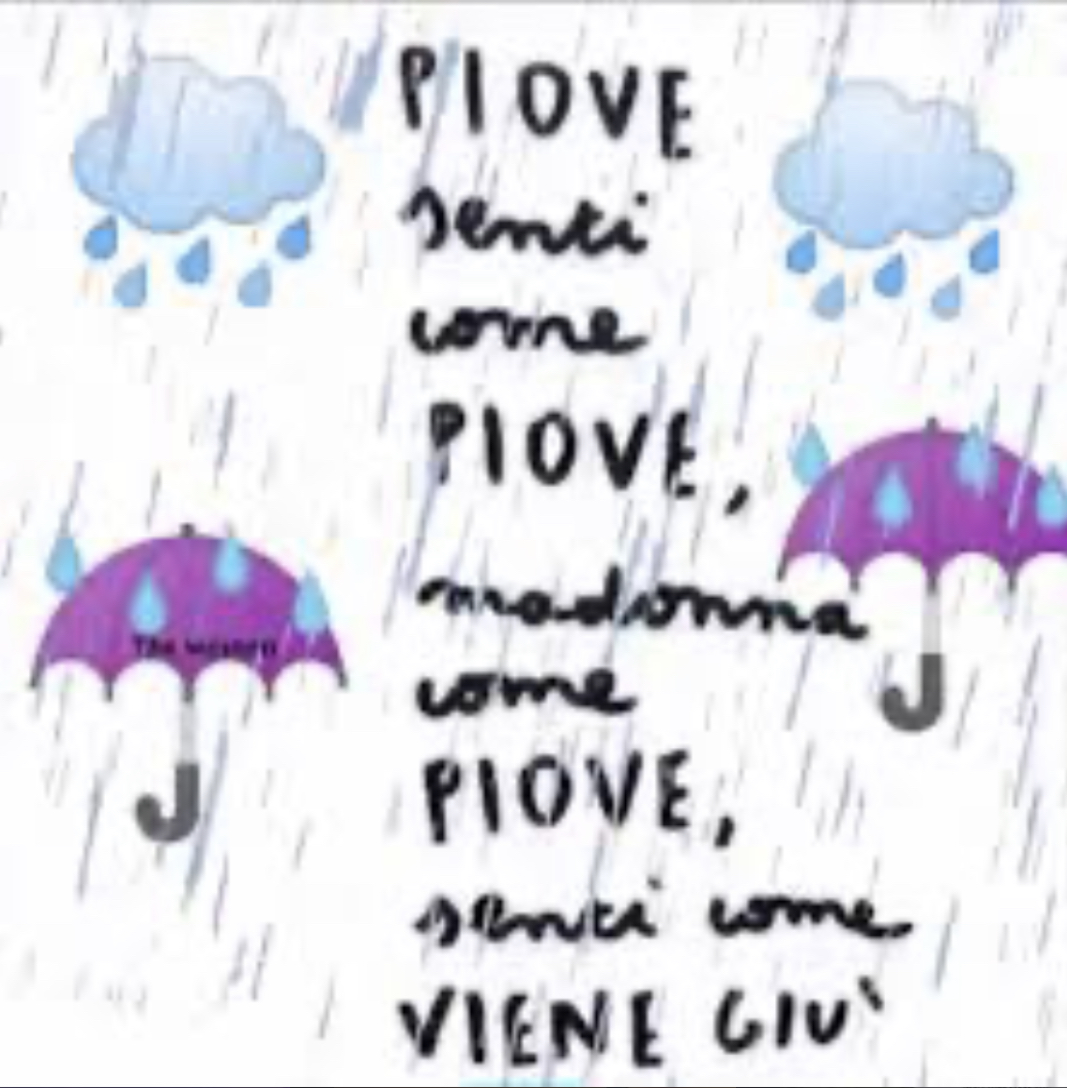 PIOVE
senti
come
PIOVE,
madonna
come
PIOVE,
senti come
VIENE GIU'